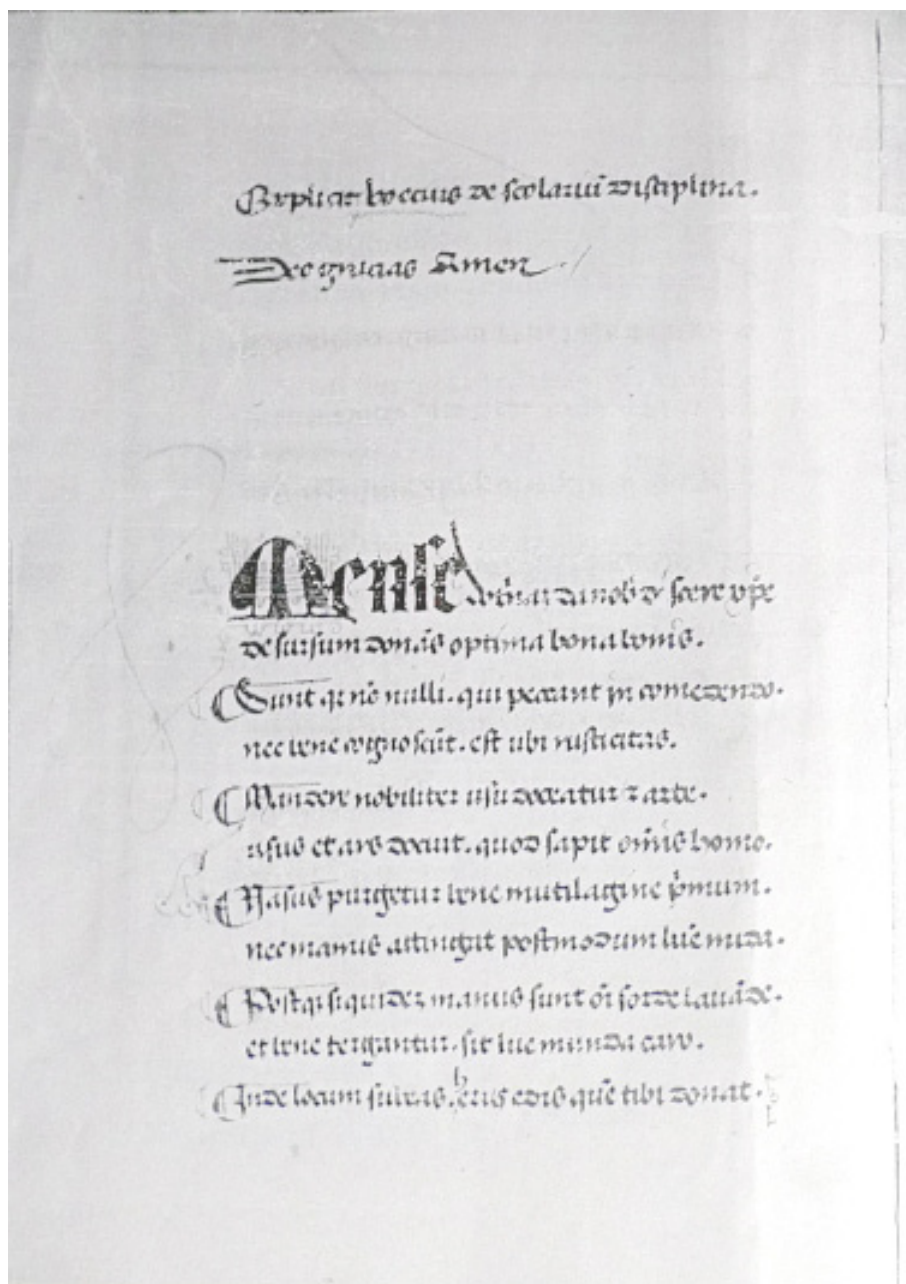 Explicit boecius de scolariū disciplina.
Deo gracias Amen
Mense
desursum donās optima bona bonis.
Sunt qi nō nulli. qui peccant in comedendo.
nec bene cognoscūt. est ubi rusticitas.
Mandere nobiliter usu doceatur z arte.
usus et ars docuit. quod sapit om̄is homo.
Nasus purgetur bene mutilagine p̄mum.
nec manus attingat postmodum
Postqi siquidez manus sunt oī sorde
et bene tergantur. sit huc munda caro.
Inde locum subeas. herus edis quē tibi donat.